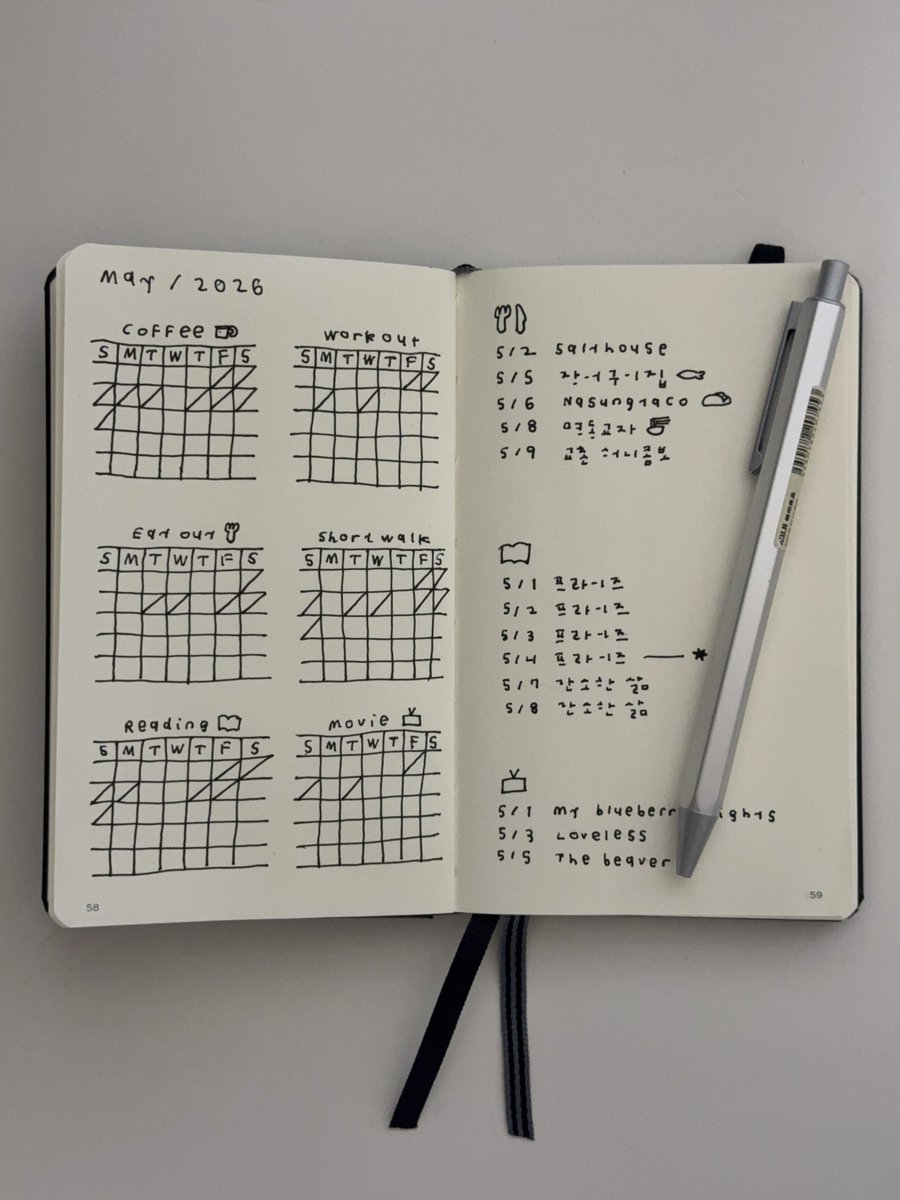 May / 2026
Coffee
S M T W T F S
Workout
S M T W T F S
Eat out
S M T W T F S
Short walk
S M T W T F S
Reading
S M T W T F S
Movie
S M T W T F S
58
5/2 Salthouse
5/5 장어구이집
5/6 Nasungtaco
5/8 명동교자
5/9 교촌 허니콤보
5/1 프라이즈
5/2 프라이즈
5/3 프라이즈
5/4 프라이즈
5/7 간소한 삶
5/8 간소한 삶
5/1 My blueberr ights
5/3 Loveless
5/5 The beaver
59